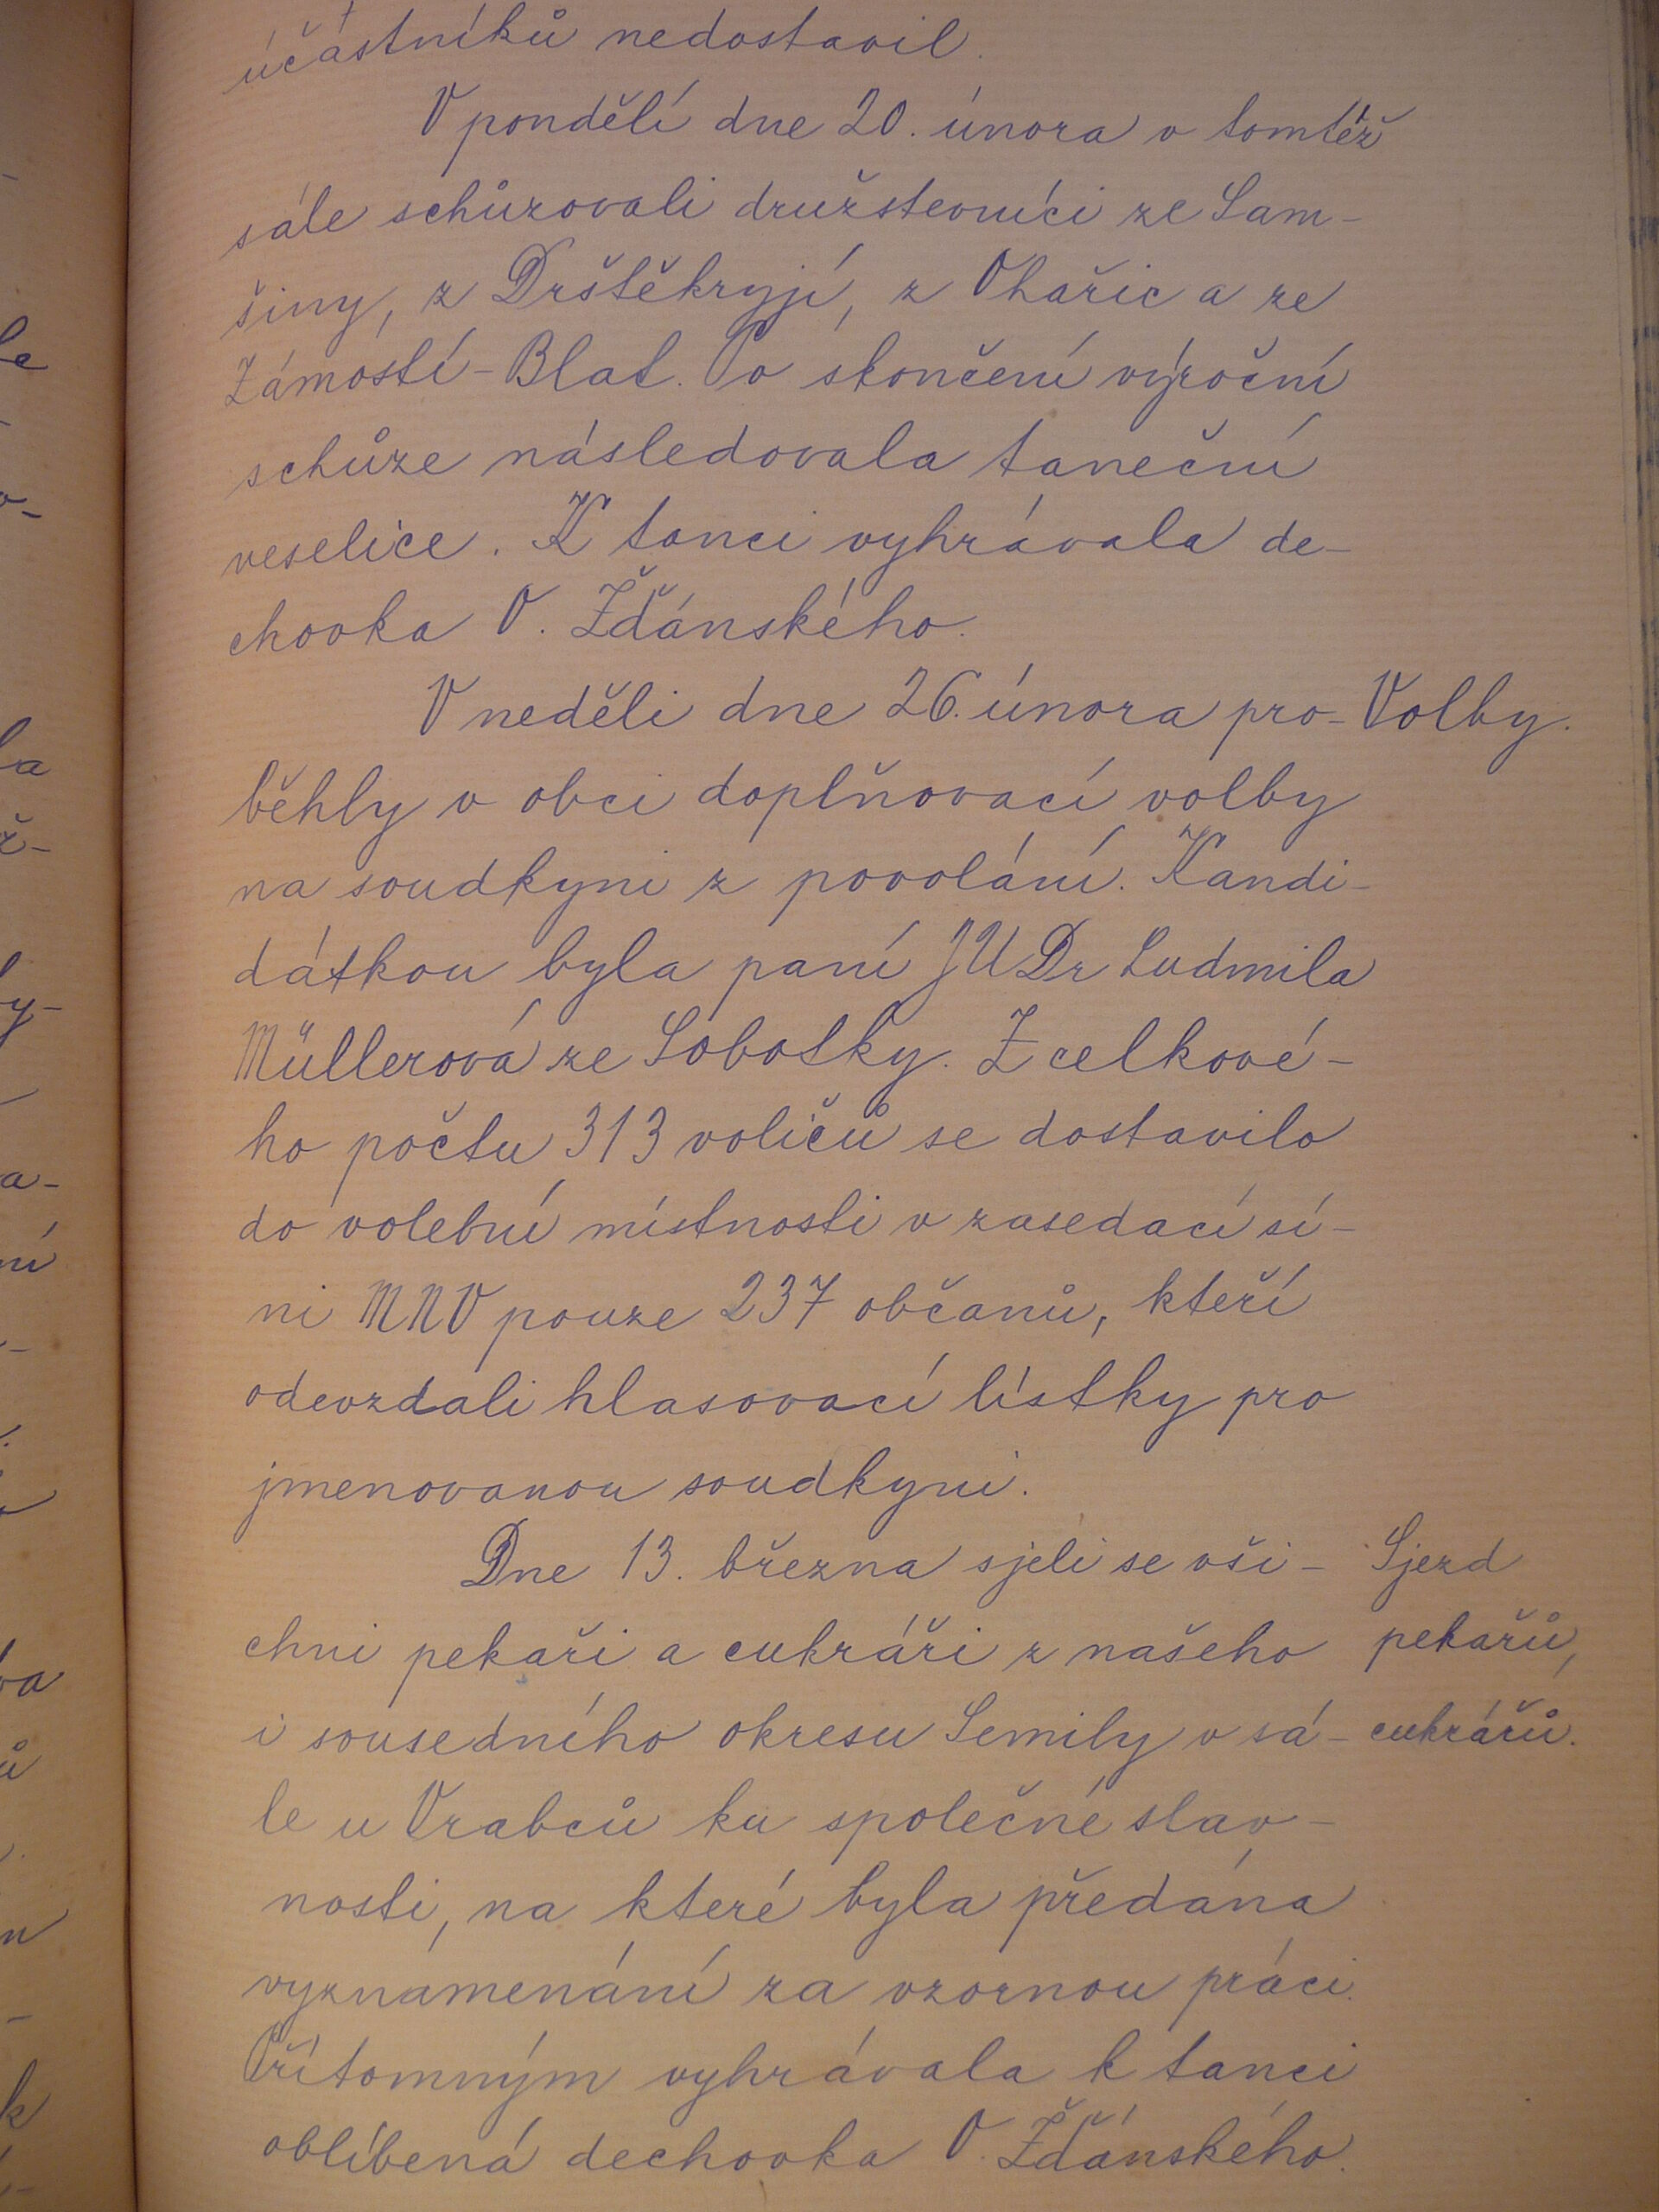 účástníků nedostavil.
V pondělí dne 20. února v tomtéž
sále schůzovali družstevníci ze Sam-
šiny, z Drštěkryjí, z Ohařic a ze
Zámostí-Blat. Po skončení výroční
schůze následovala taneční
veselice. K tanci vyhrávala de-
chovka V. Žďánského.
V neděli dne 26. února pro- Volby.
běhly v obci doplňovací volby
na soudkyni z povolání. Kandi-
dátkou byla paní JUDr Ludmila
Müllerová ze Sobotky. Z celkové-
ho počtu 313 voličů se dostavilo
do volební místnosti v zasedací sí-
ni MNV pouze 237 občanů, kteří
odevzdali hlasovací lístky pro
jmenovanou soudkyni.
Dne 13. března sjeli se vši- Sjezd
chni pekaři a cukráři z našeho pekařů,
i sousedního okresu Semily v sá- cukrářů.
le u Vrabců ku společné slav-
nosti, na které byla předána
vyznamenání za vzornou práci.
Přítomným vyhrávala k tanci
oblíbená dechovka V. Žďánského.